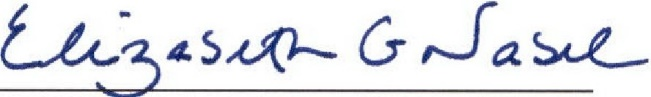 Elizabeth G Nasel